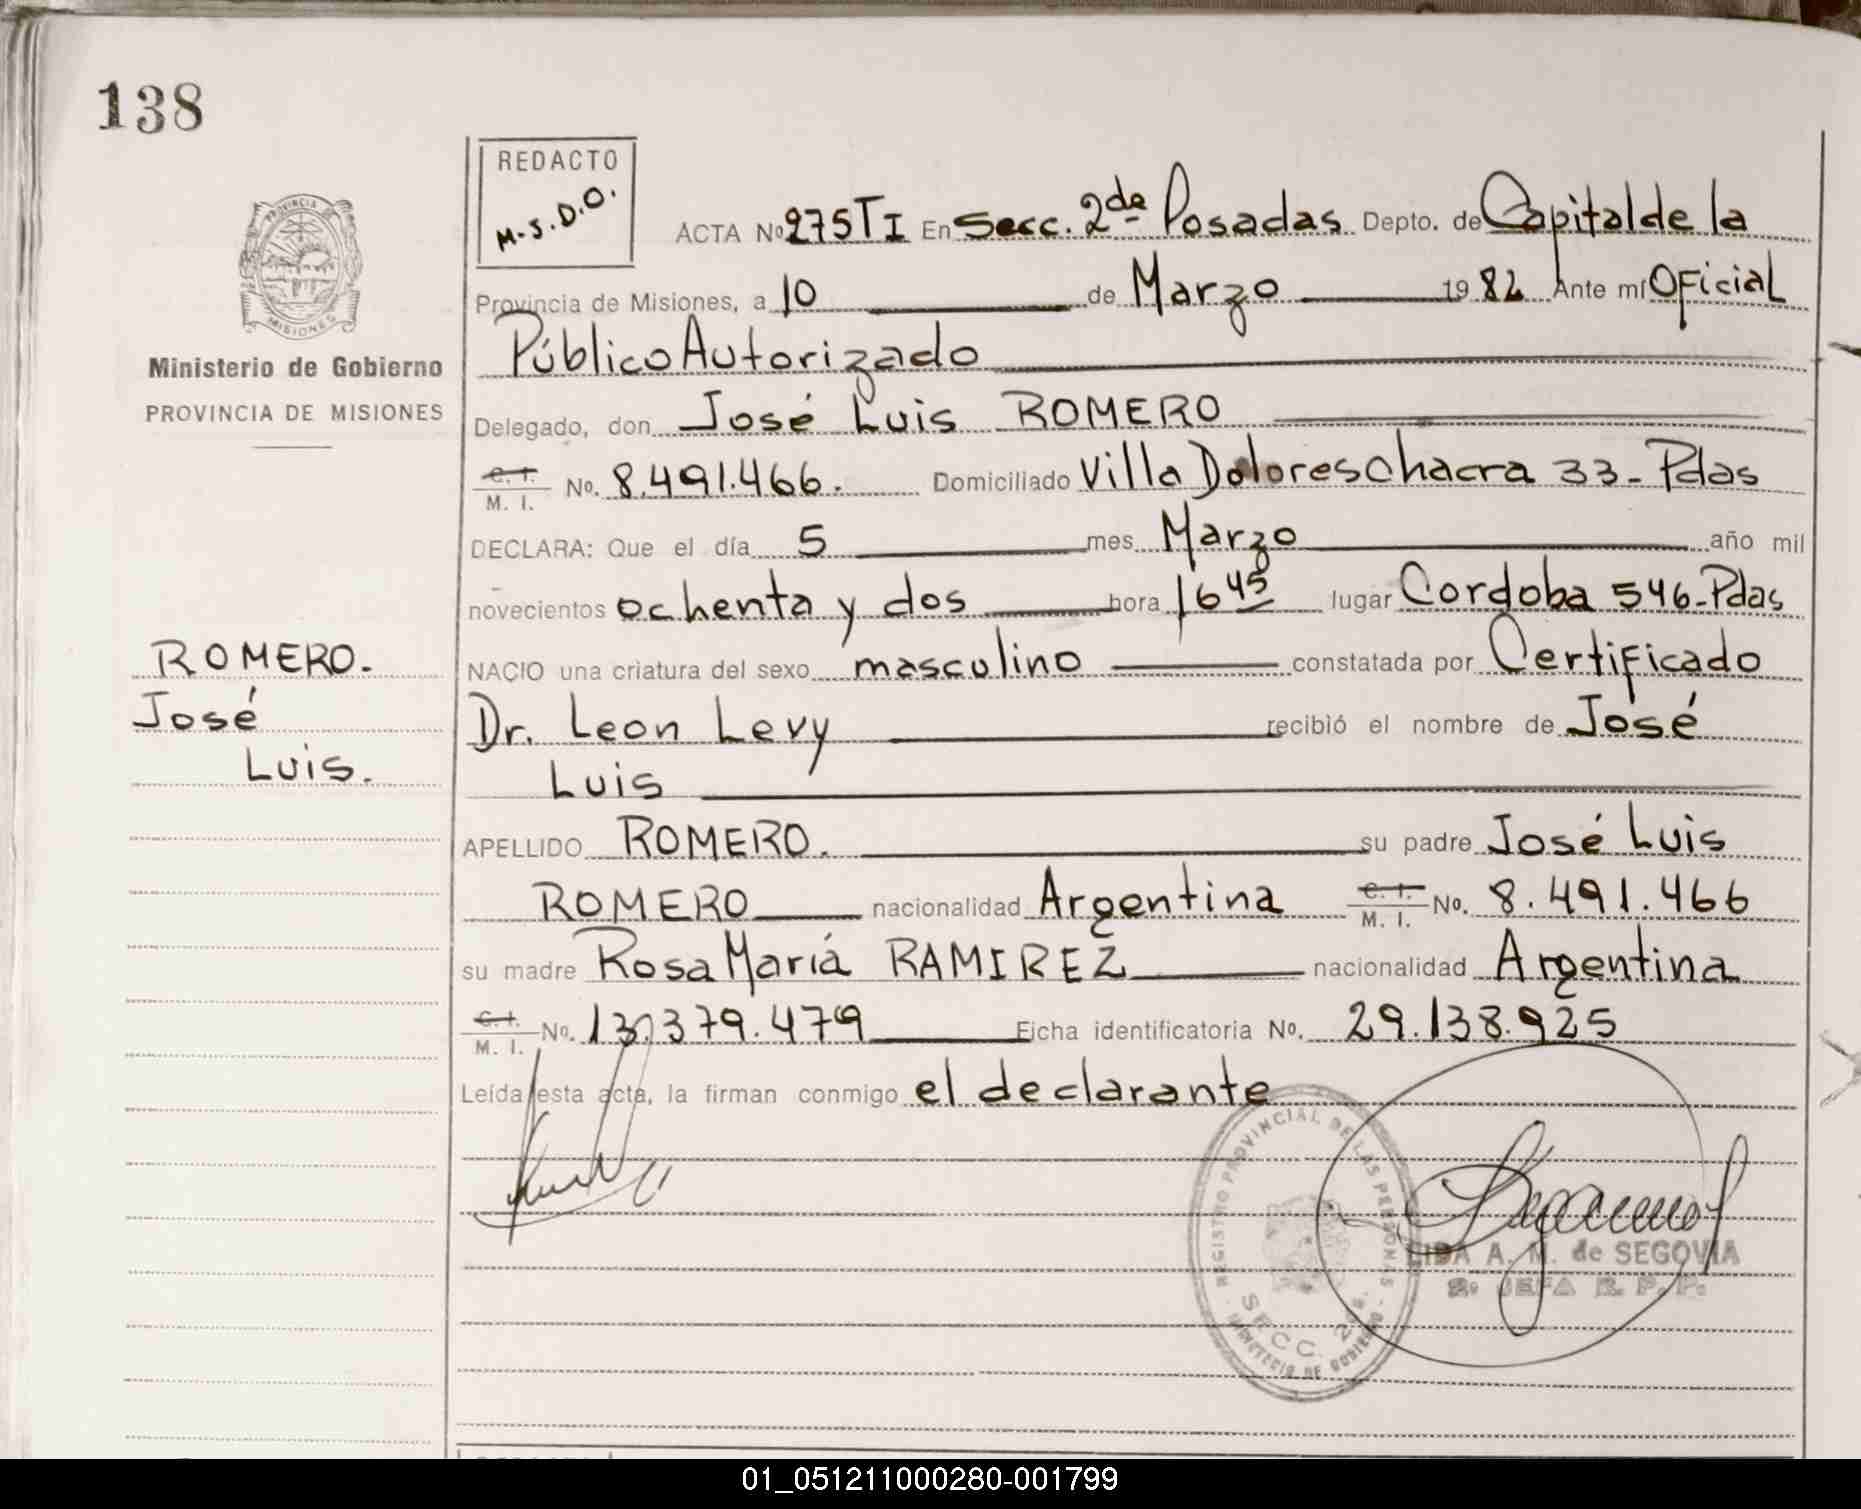 138
REDACTO
M.S.D.O.
PROVINCIA DE
MISIONES
Ministerio de Gobierno
PROVINCIA DE MISIONES
ROMERO.
José
Luis.
ACTA No 275 TI En Secc. 2da Posadas Depto. de Capital de la
Provincia de Misiones, a 10 de Marzo 1982 Ante mí Oficial
Público Autorizado
Delegado, don José Luis ROMERO
C. I. / M. I. No. 8.491.466. Domiciliado Villa Dolores Chacra 33 - Pdas
DECLARA: Que el día 5 mes Marzo año mil
novecientos ochenta y dos hora 16 45 lugar Cordoba 546-Pdas
NACIO una criatura del sexo masculino constatada por Certificado
Dr. Leon Levy recibió el nombre de José
Luis
APELLIDO ROMERO. su padre José Luis
ROMERO nacionalidad Argentina C. I. / M. I. No. 8.491.466
su madre Rosa María RAMIREZ nacionalidad Argentina
C. I. / M. I. No. 13.379.479 Ficha identificatoria No. 29.138.925
Leída esta acta, la firman conmigo el declarante
REGISTRO PROVINCIAL DE LAS PERSONAS
SECC. 2da.
MINISTERIO DE GOBIERNO
A. M. de SEGOVIA
2º JEFA R. P. P.
01_051211000280-001799